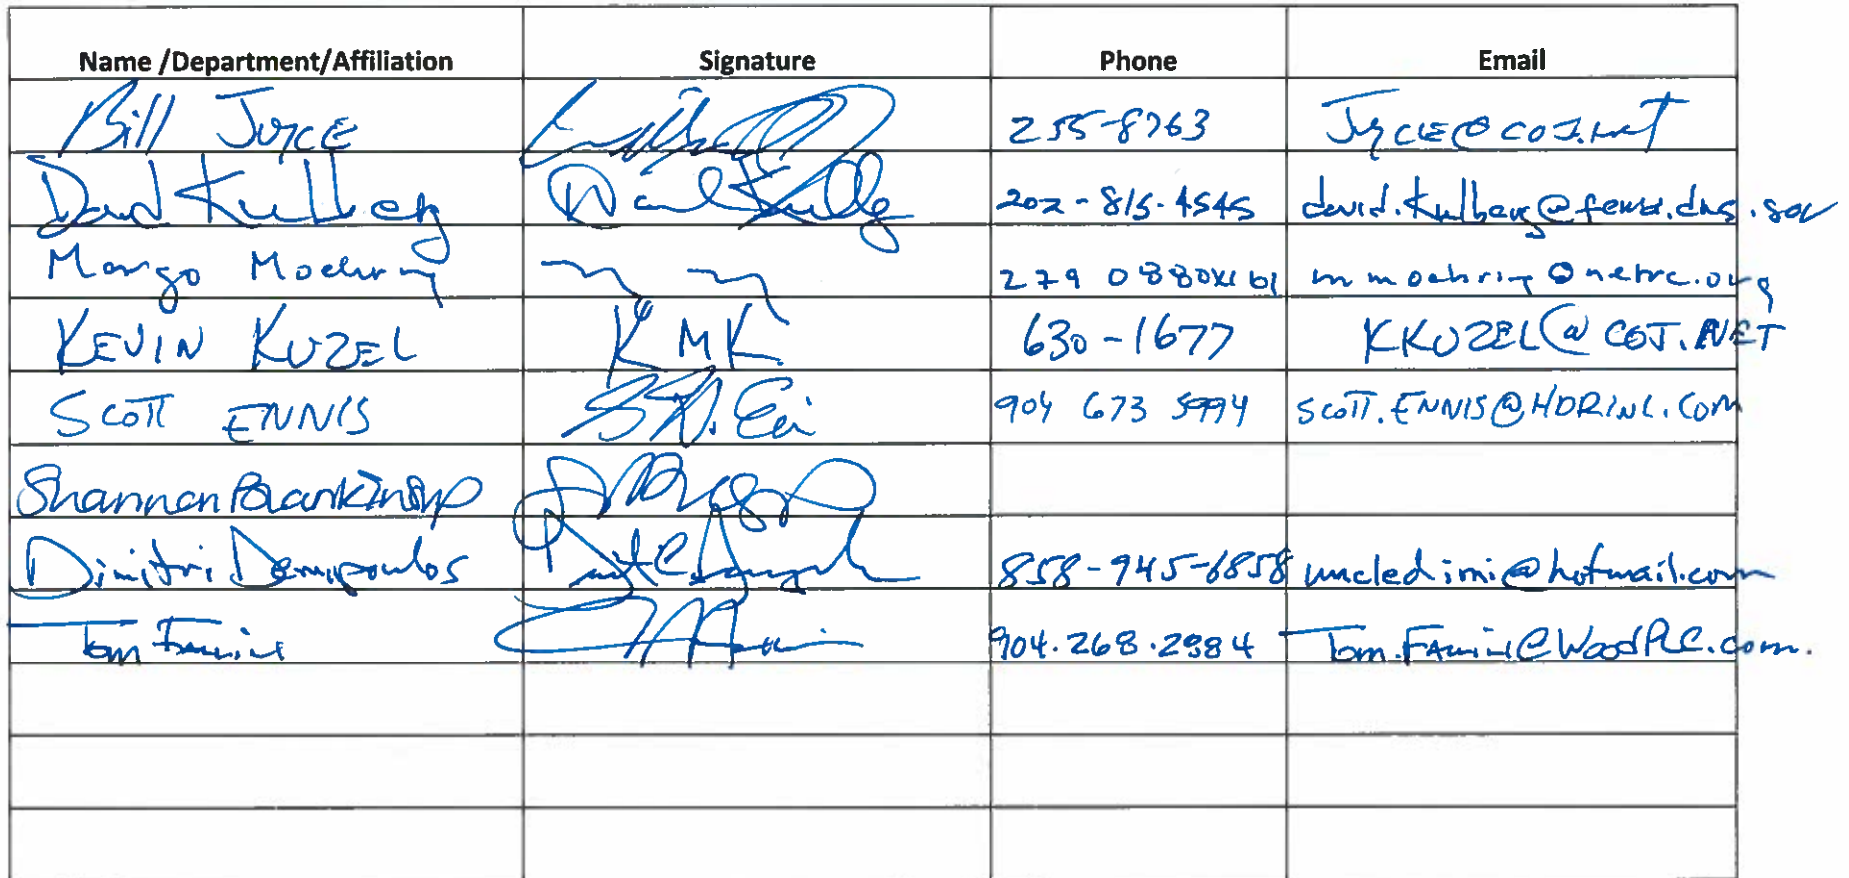 Name /Department/Affiliation Signature Phone Email
Bill Joyce 255-8763 Joyce@coj.net
David Kulberg David Kulberg 202-815-4545 david.kulberg@fema.dhs.gov
Margo Moehring 279 0880x161 mmoehring@nefrc.org
KEVIN KUZEL KMK 630-1677 KKUZEL@COJ.NET
SCOTT ENNIS 904 673 5994 SCOTT.ENNIS@HDRINC.COM
Shannon Blankinship
Dimitri Demopoulos 858-945-6858 uncledimi@hotmail.com
Tom 904.268.2884